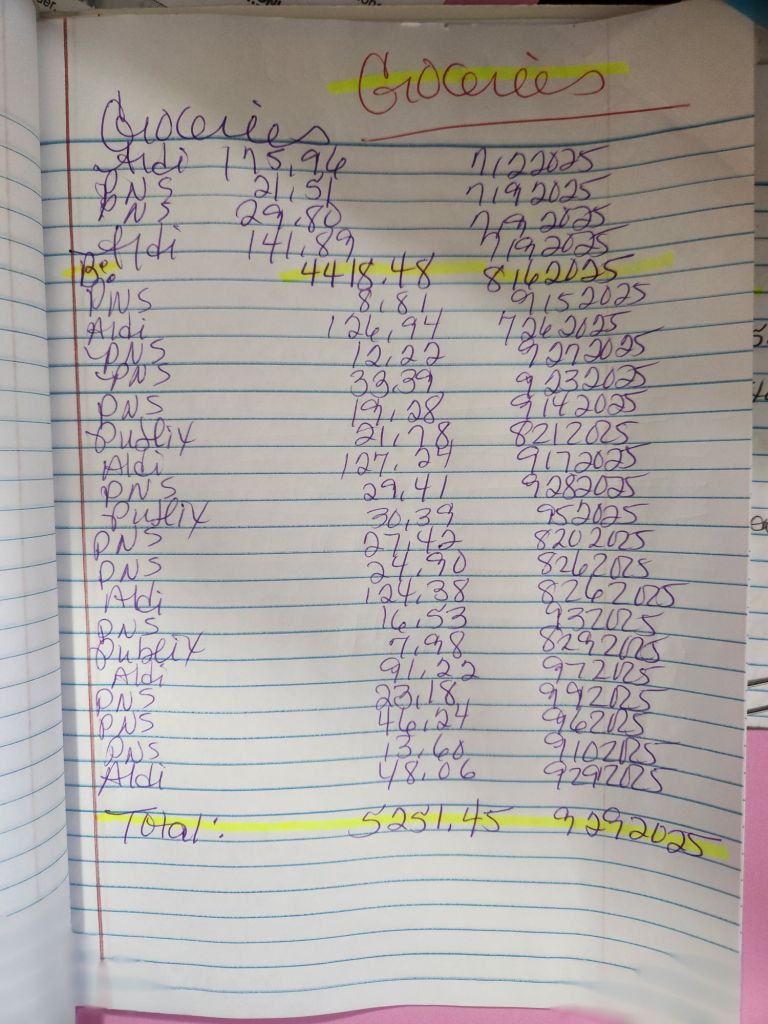 Groceries
Groceries
Aldi 175.96 7122025
PNS 21.51 7192025
PNS 29.80 7192025
Aldi 141.89 7192025
B. 4418.48 8162025
PNS 8.81 9152025
Aldi 126.94 7262025
PNS 12.22 9272025
PNS 33.39 9232025
PNS 19.28 9142025
Publix 21.78 8212025
Aldi 127.29 9172025
PNS 29.41 9282025
Publix 30.39 952025
PNS 27.42 8202025
PNS 24.90 8262025
Aldi 124.38 8262025
PNS 16.53 932025
Publix 7.98 8292025
Aldi 91.22 972025
PNS 23.18 992025
PNS 46.24 962025
PNS 13.60 9102025
Aldi 48.06 9292025
Total: 5251.45 9292025